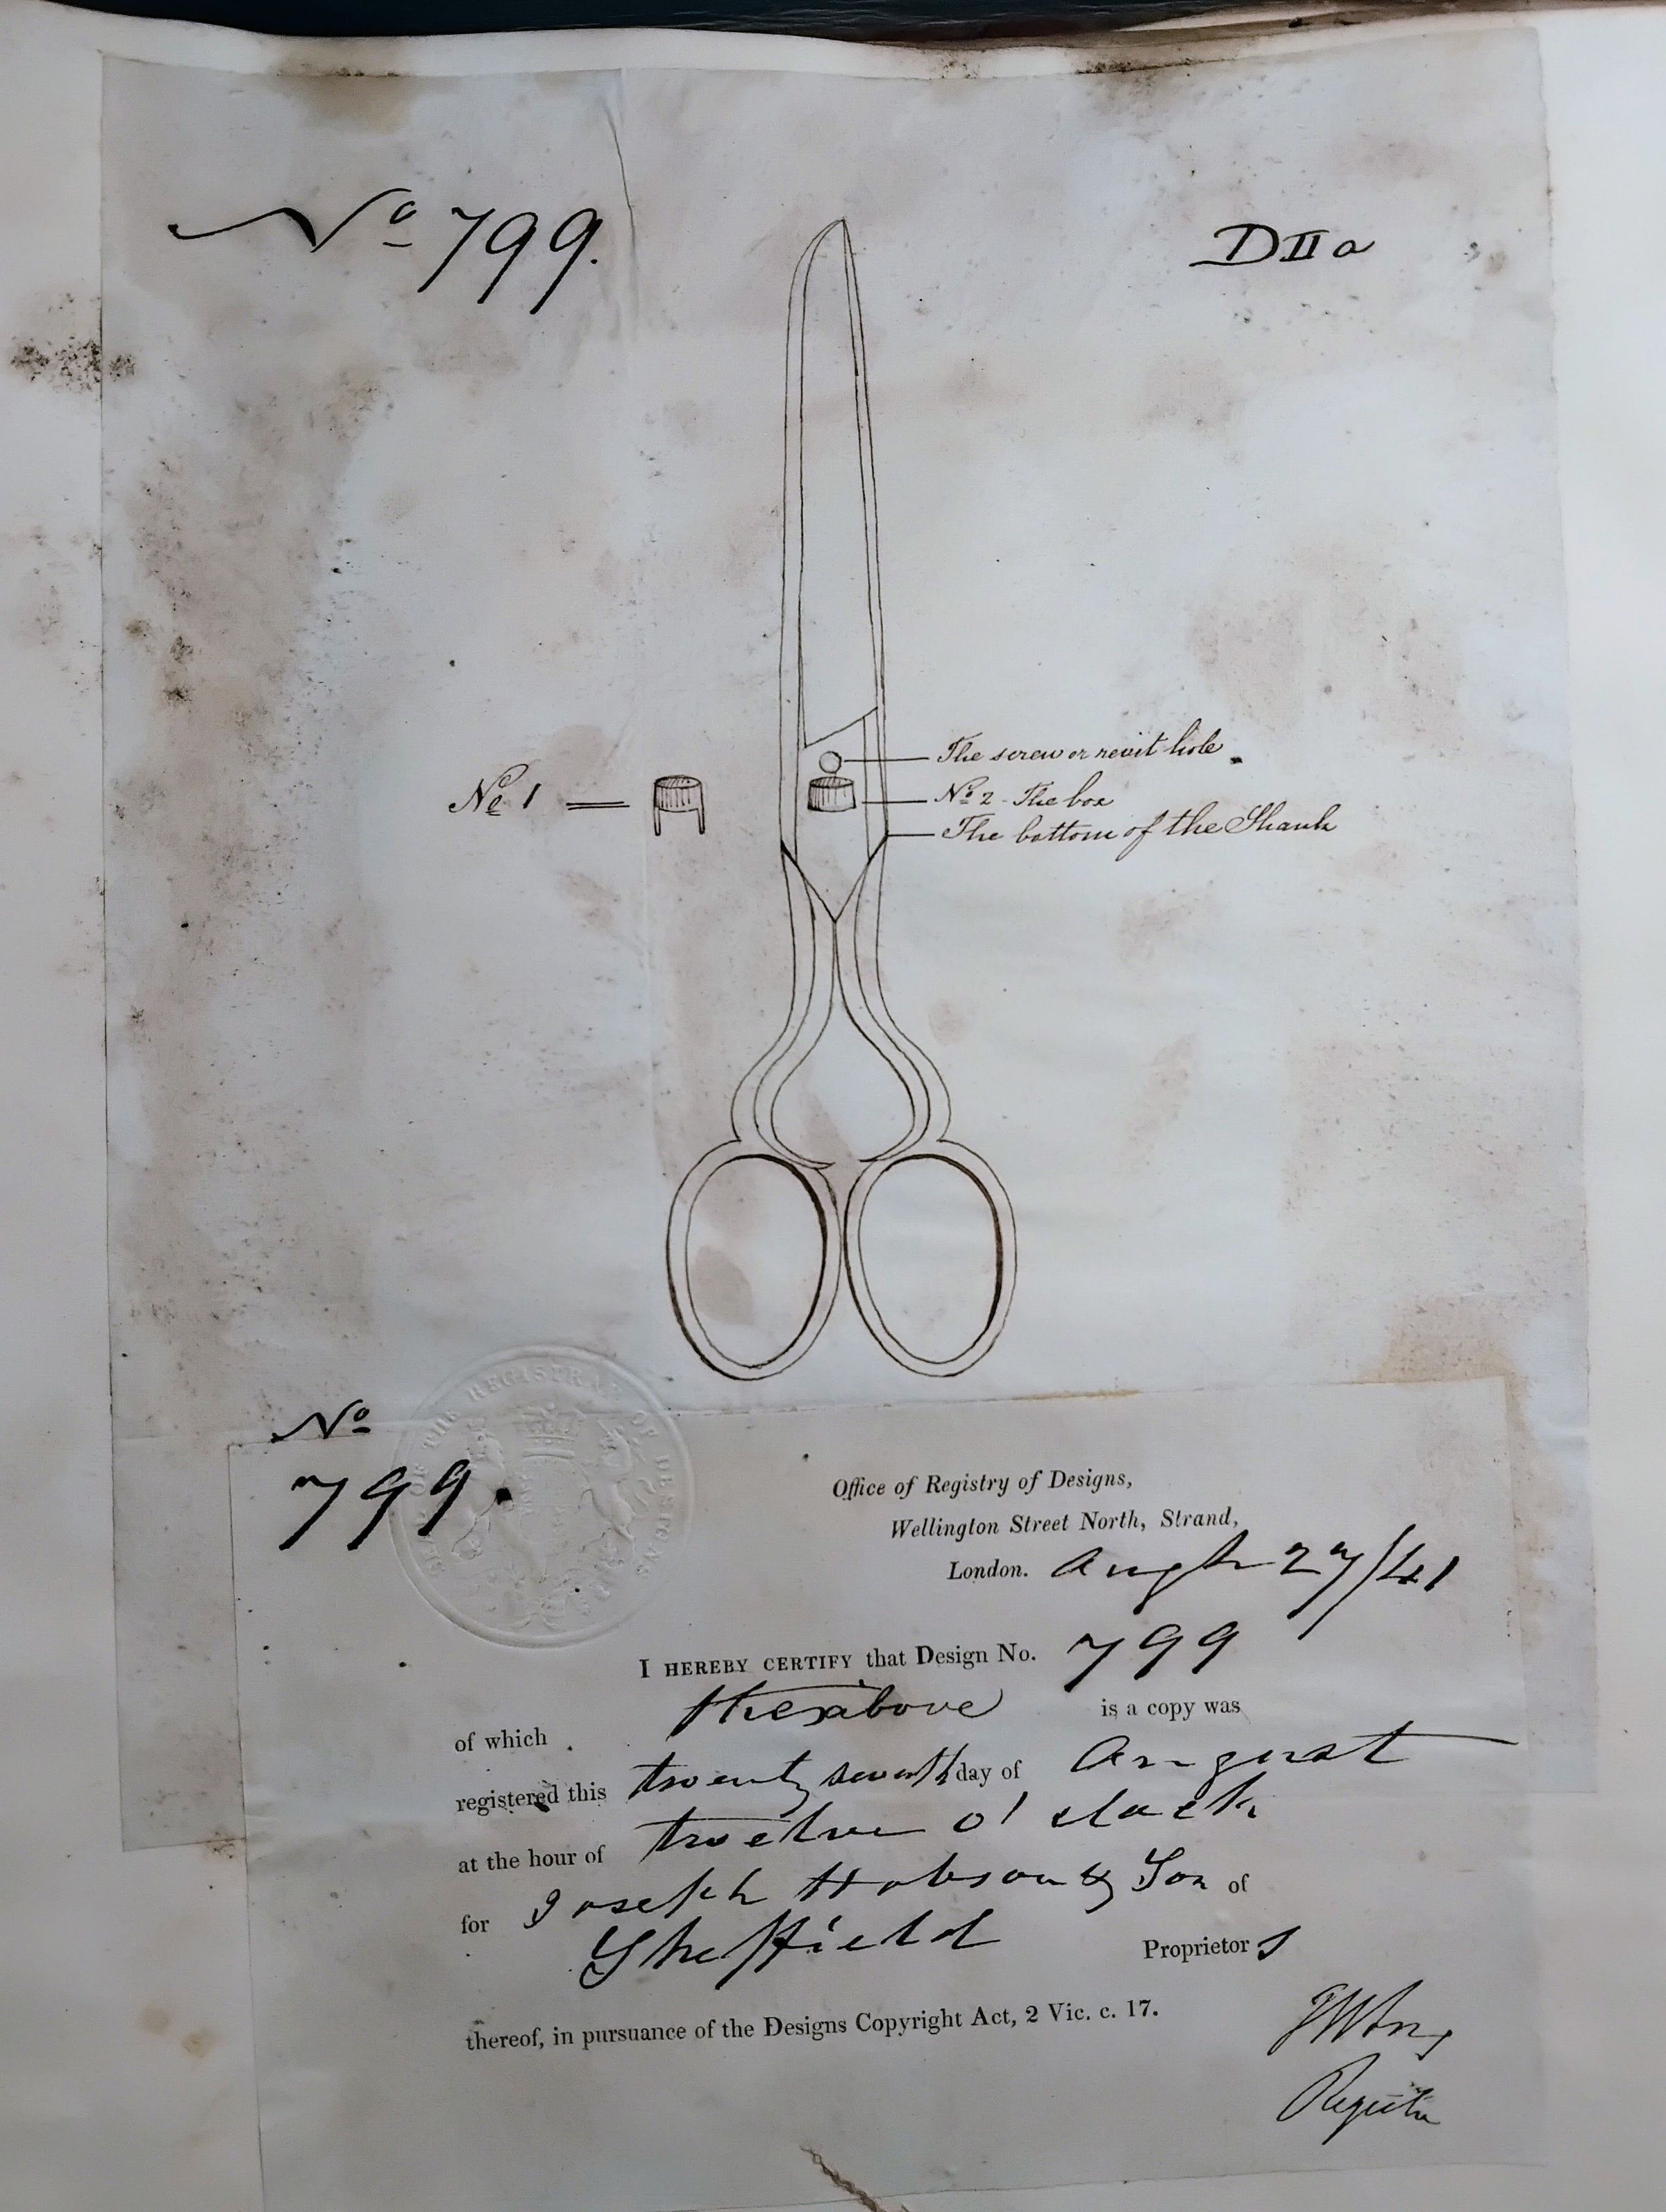 No 799.
D II a
The screw or revit hole
No 1
No 2 The box
The bottom of the Shank
SEAL OF THE REGISTRAR OF DESIGNS
No
799.
Office of Registry of Designs,
Wellington Street North, Strand,
London. Augt 27/41
I HEREBY CERTIFY that Design No. 799
of which the above is a copy was
registered this twenty seventh day of August
at the hour of twelve o'clock
for Joseph Hobson & Son of
Sheffield Proprietors
thereof, in pursuance of the Designs Copyright Act, 2 Vic. c. 17.